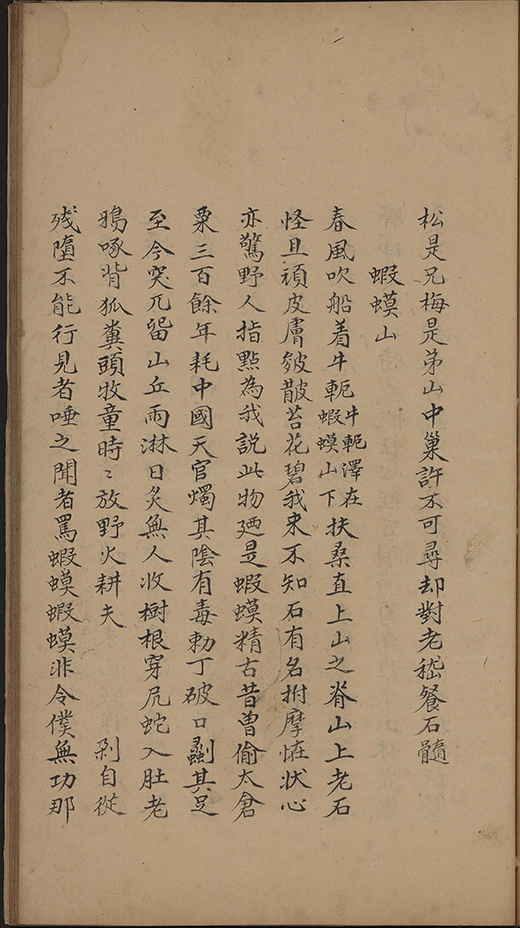 松是兄梅是弟山中巢許不可尋却對老嵇餐石髓
蝦蟆山
春風吹船着牛軛牛軛澤在蝦蟆山下扶桑直上山之脊山上老石
怪且頑皮膚皴皵苔花碧我来不知石有名拊摩恠状心
亦驚野人指點為我説此物廼是蝦蟆精古昔曾偷太倉
粟三百餘年耗中國天官燭其陰有毒勅丁破口劙其足
至今突兀留山丘雨淋日炙無人收樹根穿尻蛇入肚老
鴉啄背狐糞頭牧童時〻放野火耕夫　　剥自從
殘墮不能行見者唾之聞者罵蝦蟆蝦蟆非令僕無功那